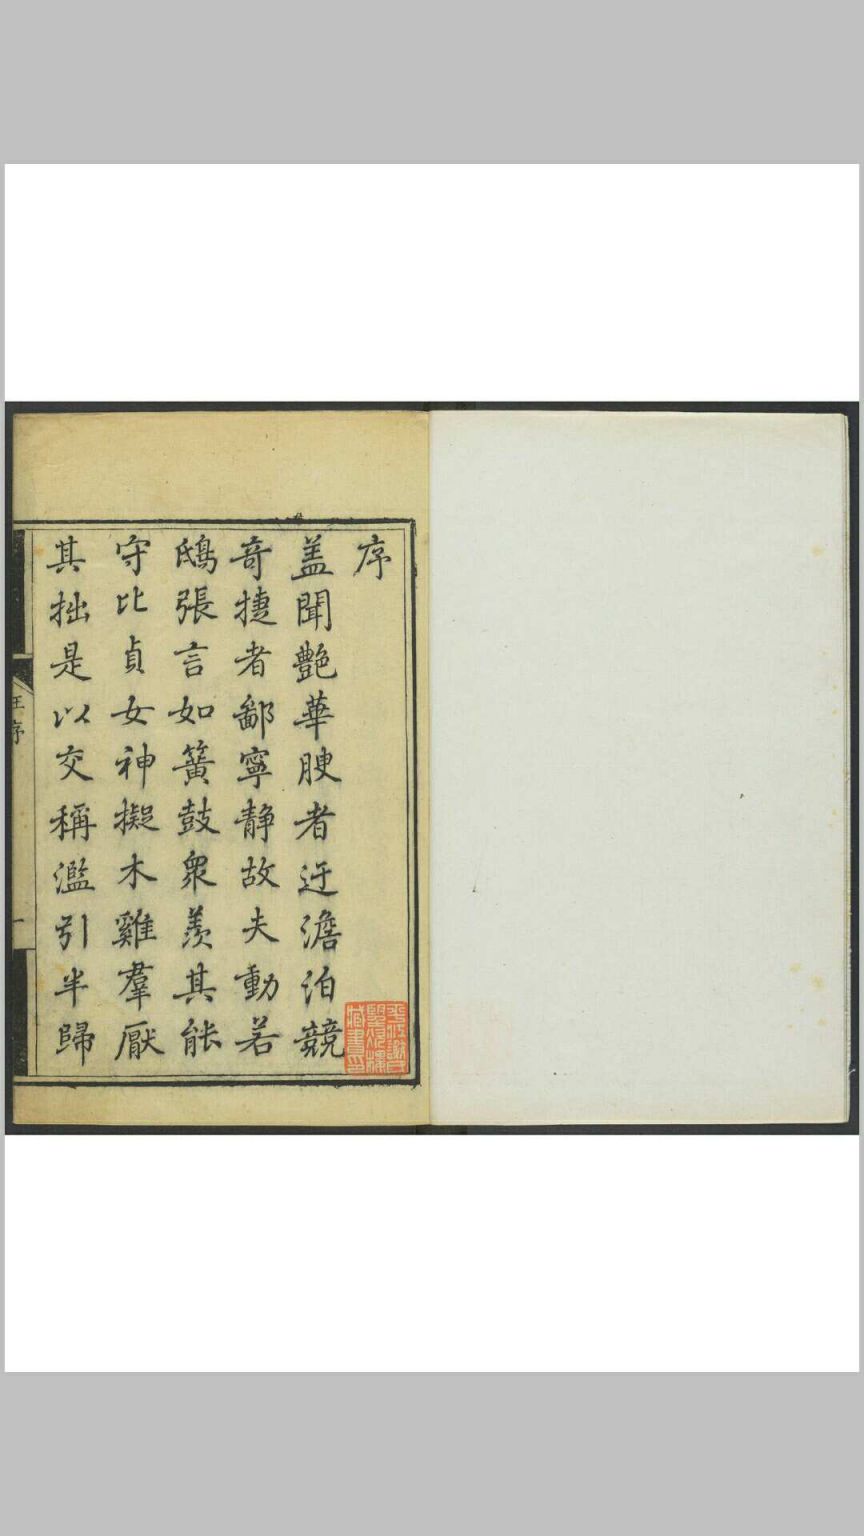 序
盖聞艷華腴者迂澹泊競
奇捷者鄙寧静故夫動若
鴟張言如簧鼓衆羨其能
守比貞女神擬木雞羣厭
其拙是以交稱濫引半歸
汪序
一